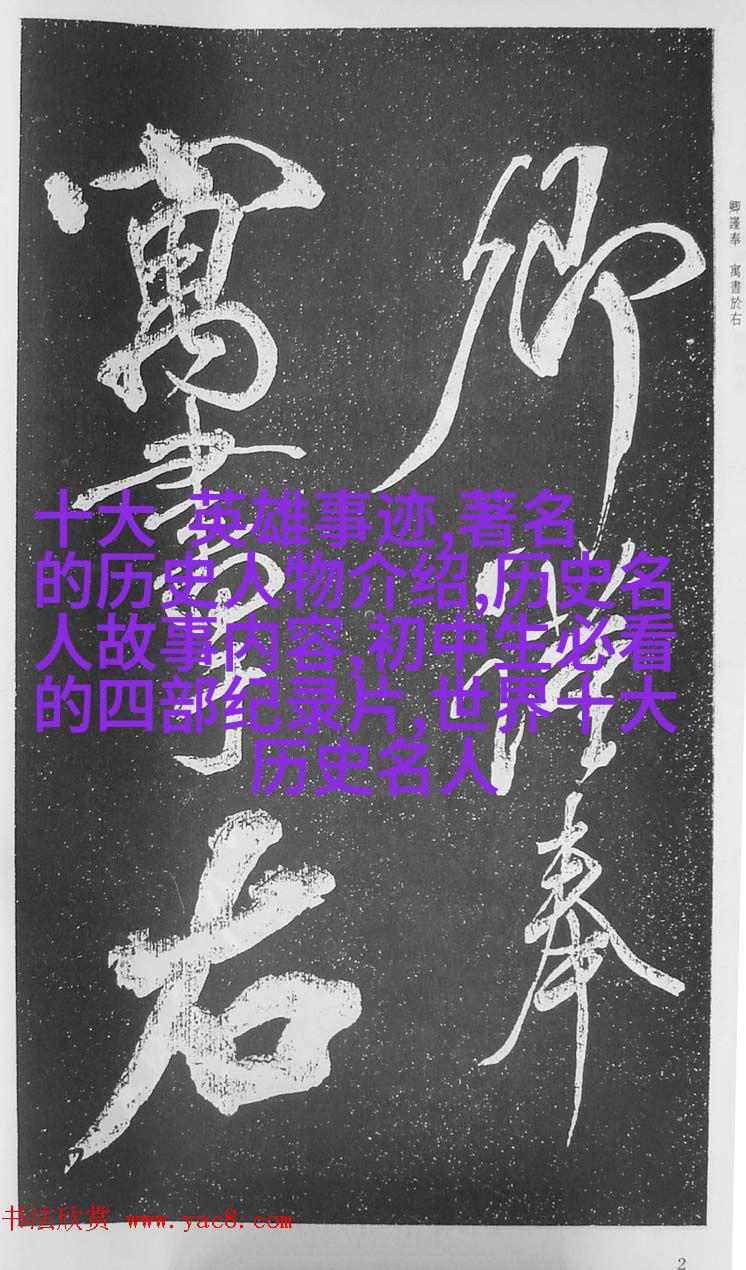 卿謹奉
寓書於右
卿謹奉 寓書於右
十大 英雄事迹,著名
的历史人物介绍,历史名
人故事内容,初中生必看
的四部纪录片,世界十大
历史名人
书法欣赏 www.yac8.com
2